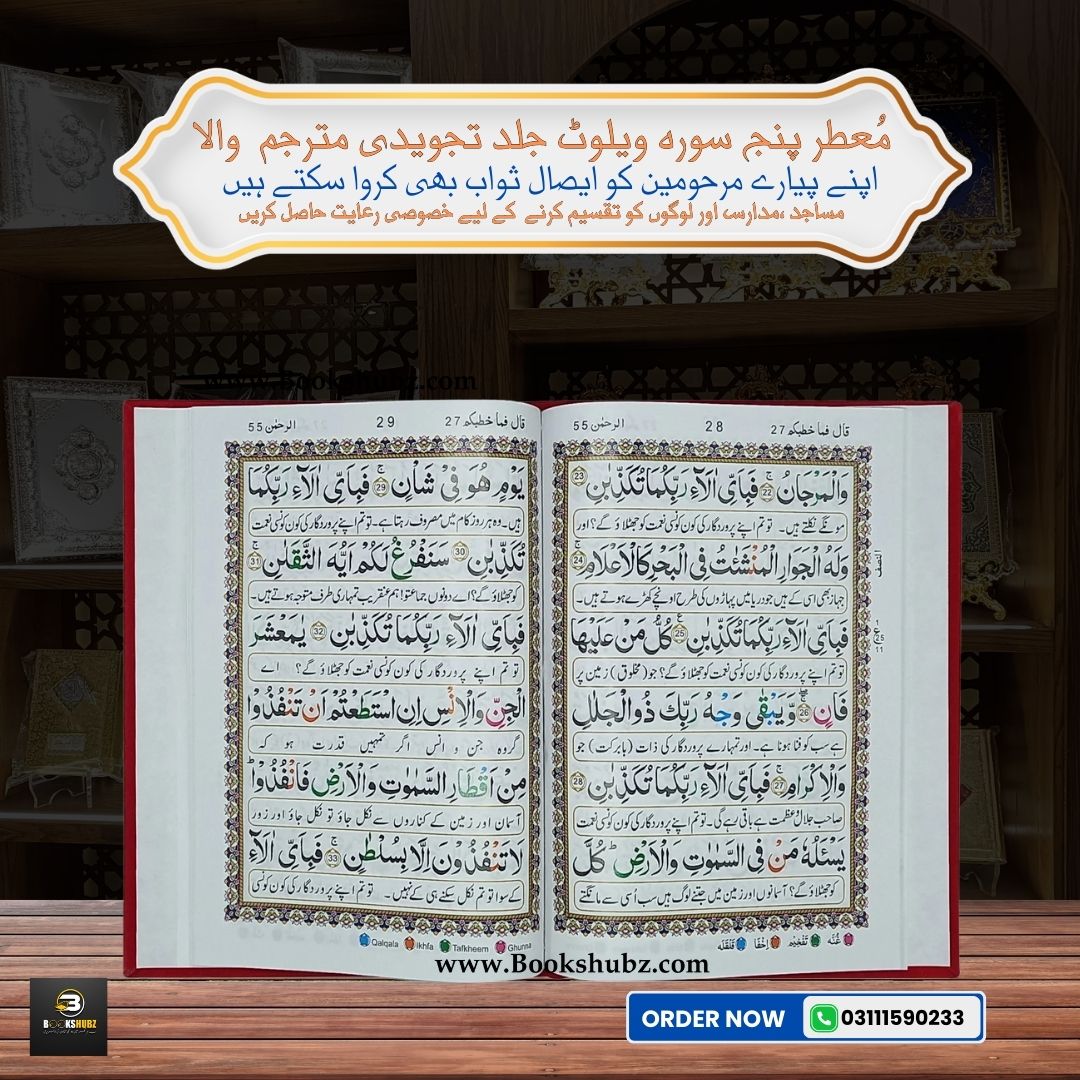 مُعطر پنج سورہ ویلوٹ جلد تجویدی مترجم والا
اپنے پیارے مرحومین کو ایصال ثواب بھی کروا سکتے ہیں
مساجد ،مدارس اور لوگوں کو تقسیم کرنے کے لیے خصوصی رعایت حاصل کریں
www.Bookshubz.com
قال فما خطبکم 27
28
الرحمٰن 55
وَالْمَرْجَانُ ۚ 22 فَبِاَىِّ اٰلَآءِ رَبِّكُمَا تُكَذِّبٰنِ 23
مونگے نکلتے ہیں۔ تو تم اپنے پروردگار کی کون کونسی نعمت کو جھٹلاؤ گے؟ اور
وَلَهُ الْجَوَارِ الْمُنْشَئٰتُ فِى الْبَحْرِ كَالْاَعْلَامِ ۚ 24
جہاز بھی اسی کے ہیں جو دریا میں پہاڑوں کی طرح اونچے کھڑے ہوتے ہیں۔
فَبِاَىِّ اٰلَآءِ رَبِّكُمَا تُكَذِّبٰنِ 25 كُلُّ مَنْ عَلَيْهَا
تو تم اپنے پروردگار کی کون کونسی نعمت کو جھٹلاؤ گے؟ جو (مخلوق) زمین پر
فَانٍ 26 وَّيَبْقٰى وَجْهُ رَبِّكَ ذُو الْجَلٰلِ
ہے سب کو فنا ہونا ہے۔ اور تمہارے پروردگار کی ذات (بابرکت) جو
وَالْاِكْرَامِ ۚ 27 فَبِاَىِّ اٰلَآءِ رَبِّكُمَا تُكَذِّبٰنِ 28
صاحب جلال و عظمت ہے باقی رہے گی۔ تو تم اپنے پروردگار کی کون کونسی نعمت
يَسْئَلُهٗ مَنْ فِى السَّمٰوٰتِ وَالْاَرْضِ ؕ كُلَّ
کو جھٹلاؤ گے؟ آسمانوں اور زمین میں جتنے لوگ ہیں سب اُسی سے مانگتے
النصف
غُنَّه تَفْخِيْم اِخْفَا قَلْقَلَه
قال فما خطبکم 27
29
الرحمٰن 55
يَوْمٍ هُوَ فِىْ شَاْنٍ ۚ 29 فَبِاَىِّ اٰلَآءِ رَبِّكُمَا
ہیں۔ وہ ہر روز کام میں مصروف رہتا ہے۔ تو تم اپنے پروردگار کی کون کونسی نعمت
تُكَذِّبٰنِ 30 سَنَفْرُغُ لَكُمْ اَيُّهَ الثَّقَلٰنِ ۚ 31
کو جھٹلاؤ گے؟ اے دونوں جماعتو! ہم عنقریب تمہاری طرف متوجہ ہوتے ہیں۔
فَبِاَىِّ اٰلَآءِ رَبِّكُمَا تُكَذِّبٰنِ 32 يٰمَعْشَرَ
تو تم اپنے پروردگار کی کون کونسی نعمت کو جھٹلاؤ گے؟ اے
الْجِنِّ وَالْاِنْسِ اِنِ اسْتَطَعْتُمْ اَنْ تَنْفُذُوْا
گروہ جن و انس اگر تمہیں قدرت ہو کہ
مِنْ اَقْطَارِ السَّمٰوٰتِ وَالْاَرْضِ فَانْفُذُوْا ؕ
آسمان اور زمین کے کناروں سے نکل جاؤ تو نکل جاؤ اور زور
لَا تَنْفُذُوْنَ اِلَّا بِسُلْطٰنٍ ۚ 33 فَبِاَىِّ اٰلَآءِ
کے سوا تو تم نکل سکنے ہی کے نہیں۔ تو تم اپنے پروردگار کی کون کونسی
Qalqala Ikhfa Tafkheem Ghunna
www.Bookshubz.com
BOOKSHUBZ
ORDER NOW 03111590233